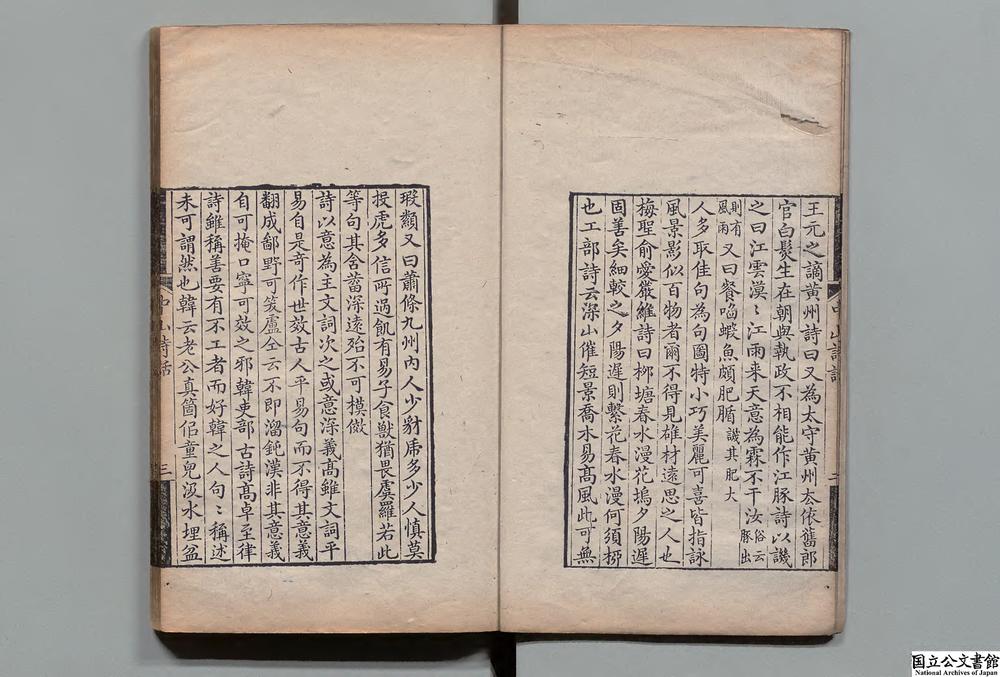 王元之謫黃州詩曰又為太守黃州去依舊郎
官白髮生在朝與執政不相能作江豚詩以譏
之曰江雲漠〻江雨来天意為霖不干汝俗云豚出
則有風雨又曰餐啗蝦魚頗肥腯譏其肥大
人多取佳句為句圖特小巧美麗可喜皆指詠
風景影似百物者爾不得見雄材遠思之人也
梅聖俞愛嚴維詩曰桞塘春水漫花塢夕陽遲
固善矣細較之夕陽遲則繫花春水漫何須桞
也工部詩云深山催短景喬木易高風此可無
瑕纇又曰蕭條九州內人少豺虎多少人慎莫
投虎多信所過飢有易子食獸猶畏虞羅若此
等句其含蓄深遠殆不可模倣
詩以意為主文詞次之或意深義高雖文詞平
易自是奇作世效古人平易句而不得其意義
翻成鄙野可笑盧仝云不即溜鈍漢非其意義
自可掩口寧可效之邪韓吏部古詩高卓至律
詩雖稱善要有不工者而好韓之人句〻稱述
未可謂然也韓云老公真箇侣童兒汲水埋盆
中山詩話
三
国立公文書館
National Archives of Japan